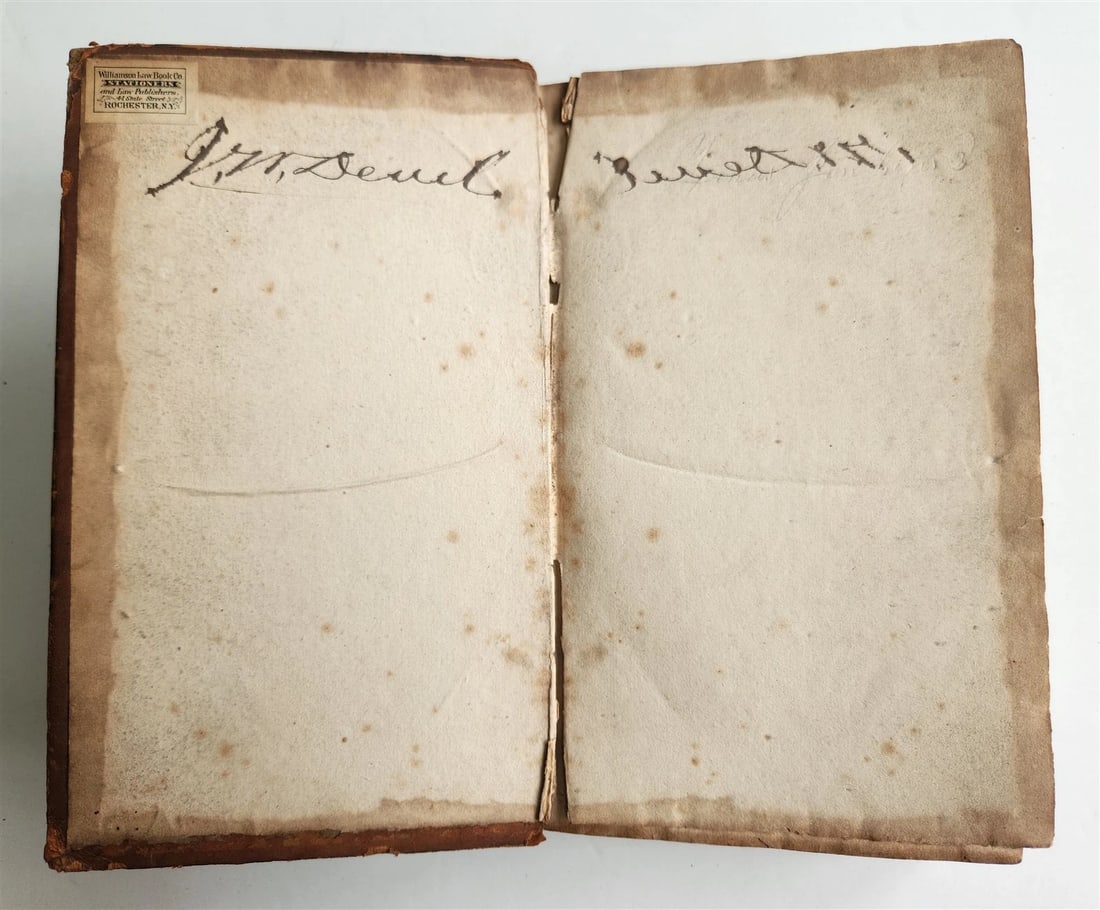 Williamson Law Book Co.
STATIONERS
and Law Publishers.
41 State Street
ROCHESTER, N.Y.
J. W. Deuel.